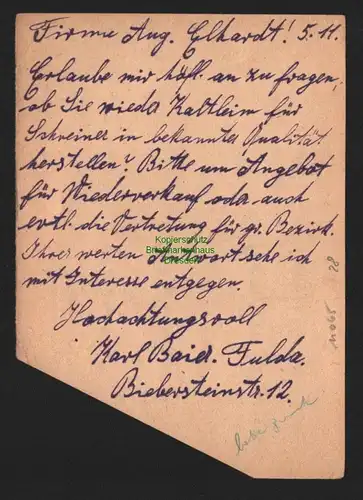 Firma Aug. Elhardt! 5.11.
Erlaube mir höfl. an zu fragen,
ob Sie wieder Kaltleim für
Schreiner in bekannter Qualität
herstellen? Bitte um Angebot
für Wiederverkauf oder auch
evtl. die Vertretung für gr. Bezirk.
Ihrer werten Antwort sehe ich
mit Interesse entgegen.
Hochachtungsvoll
Karl Baier. Fulda.
Biebersteinstr. 12.
Kopierschutz
Briefmarkenhaus
Dresden
28